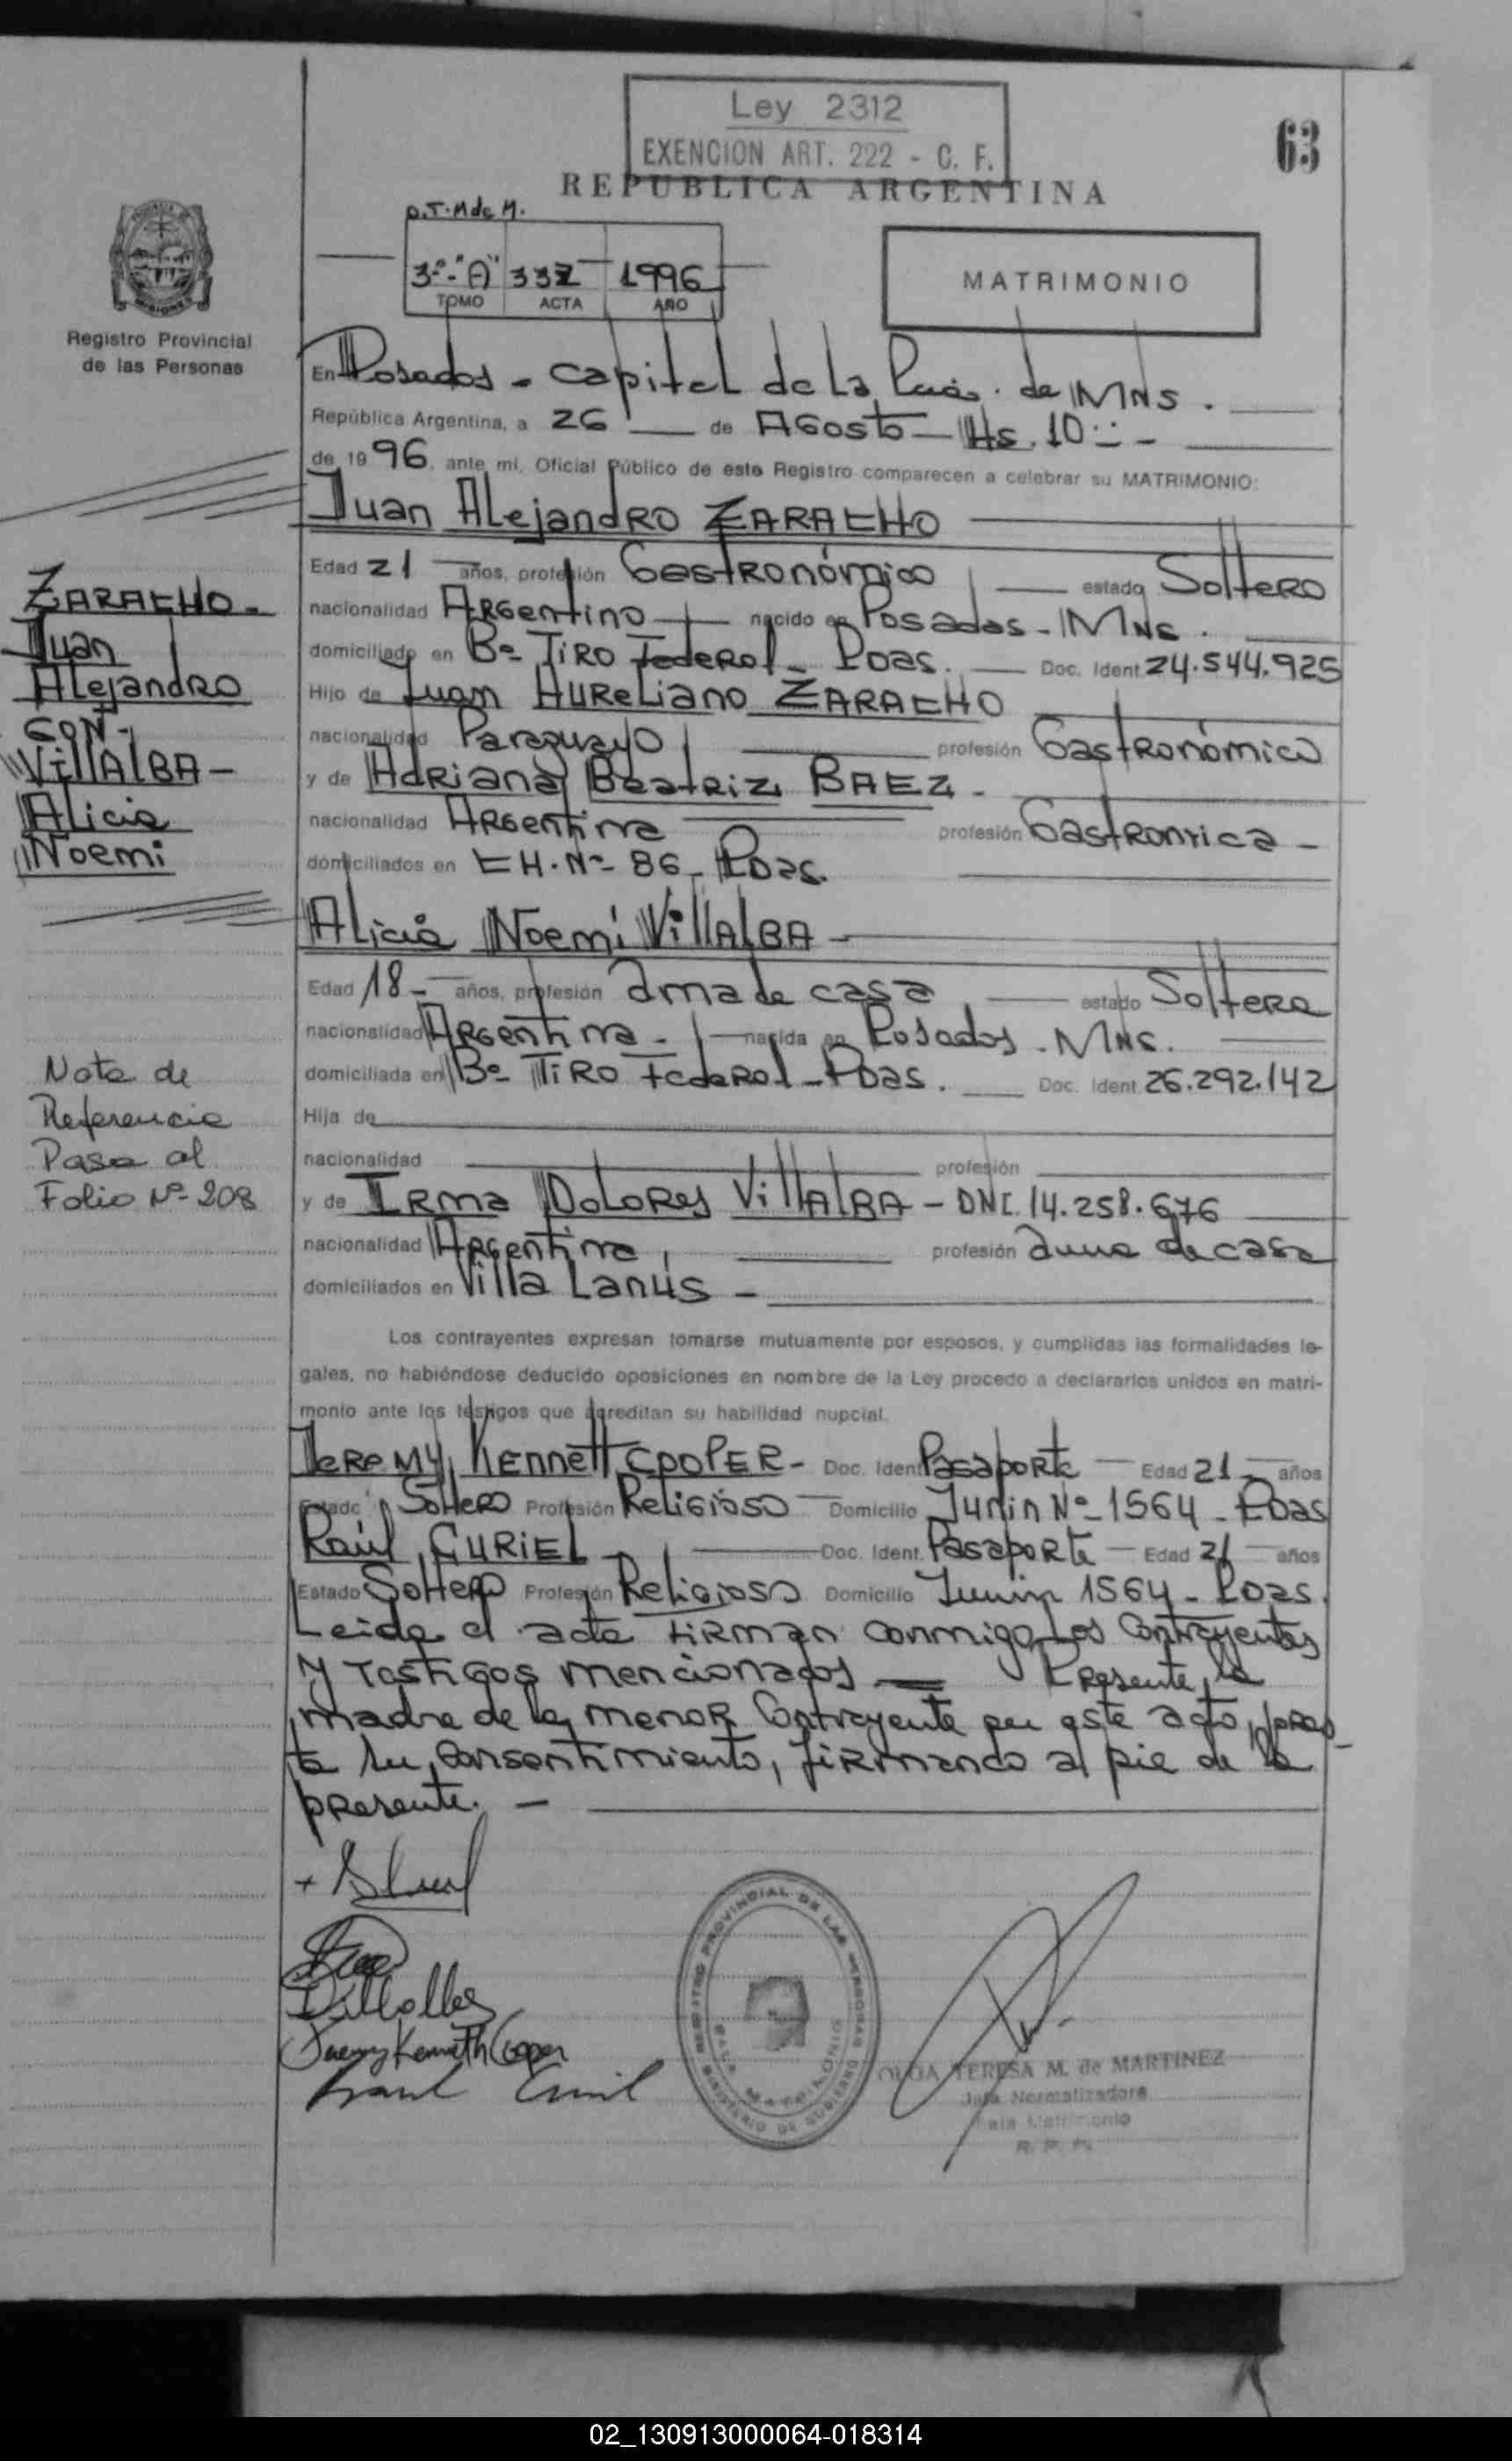 Ley 2312
EXENCION ART. 222 - C. F.
63
REPUBLICA ARGENTINA
D.T.M de M.
3º-"A" 337 1996
TOMO ACTA AÑO
MATRIMONIO
Registro Provincial
de las Personas
En Posadas - Capital de la Pcia. de MNS.
República Argentina, a 26 de Agosto Hs. 10:-
de 1996, ante mí, Oficial Público de este Registro comparecen a celebrar su MATRIMONIO:
Juan Alejandro ZARACHO
Edad 21 años, profesión Gastronómico estado Soltero
nacionalidad Argentino nacido en Posadas - MNS.
domiciliado en Bº Tiro Federal - Pdas. Doc. Ident 24.544.925
Hijo de Juan Aureliano ZARACHO
nacionalidad Paraguayo profesión Gastronómico
y de Adriana Beatriz BAEZ -
nacionalidad Argentina profesión Gastronica -
domiciliados en CH. Nº 86 - Pdas.
Alicia Noemí Villalba -
Edad 18 - años, profesión ama de casa estado Soltera
nacionalidad Argentina - nacida en Posadas. MNS.
domiciliada en Bº Tiro Federal - Pdas. Doc. Ident. 26.292.142
Hija de
nacionalidad profesión
y de Irma Dolores Villalba - DNI. 14.258.676
nacionalidad Argentina, profesión ama de casa
domiciliados en Villa Lanús -
Los contrayentes expresan tomarse mutuamente por esposos, y cumplidas las formalidades le-
gales, no habiéndose deducido oposiciones en nombre de la Ley procedo a declararlos unidos en matri-
monio ante los testigos que acreditan su habilidad nupcial.
Jeremy Kennett COOPER - Doc. Ident. Pasaporte Edad 21 - años
Estado Soltero Profesión Religioso Domicilio Junin Nº 1564 - Pdas
Raúl CURIEL - Doc. Ident. Pasaporte Edad 21 años
Estado Soltero Profesión Religioso Domicilio Junin 1564 - Pdas.
Leida el acta firman conmigo los Contrayentes
y testigos mencionados - Presente la
madre de la menor Contrayente en este acto, pres-
ta su consentimiento, firmando al pie de la
presente. -
ZARACHO -
Juan
Alejandro
CON -
Villalba -
Alicia
Noemi
Nota de
Referencia
Pasa al
Folio Nº 208
Villalba
Jeremy Kenneth Cooper
Raul Curiel
REGISTRO PROVINCIAL DE LAS PERSONAS
SALA MATRIMONIO
MINISTERIO DE GOBIERNO
OLGA TERESA M. de MARTINEZ
Jefa Normalizadora
Sala Matrimonio
R. P. P.
02_130913000064-018314